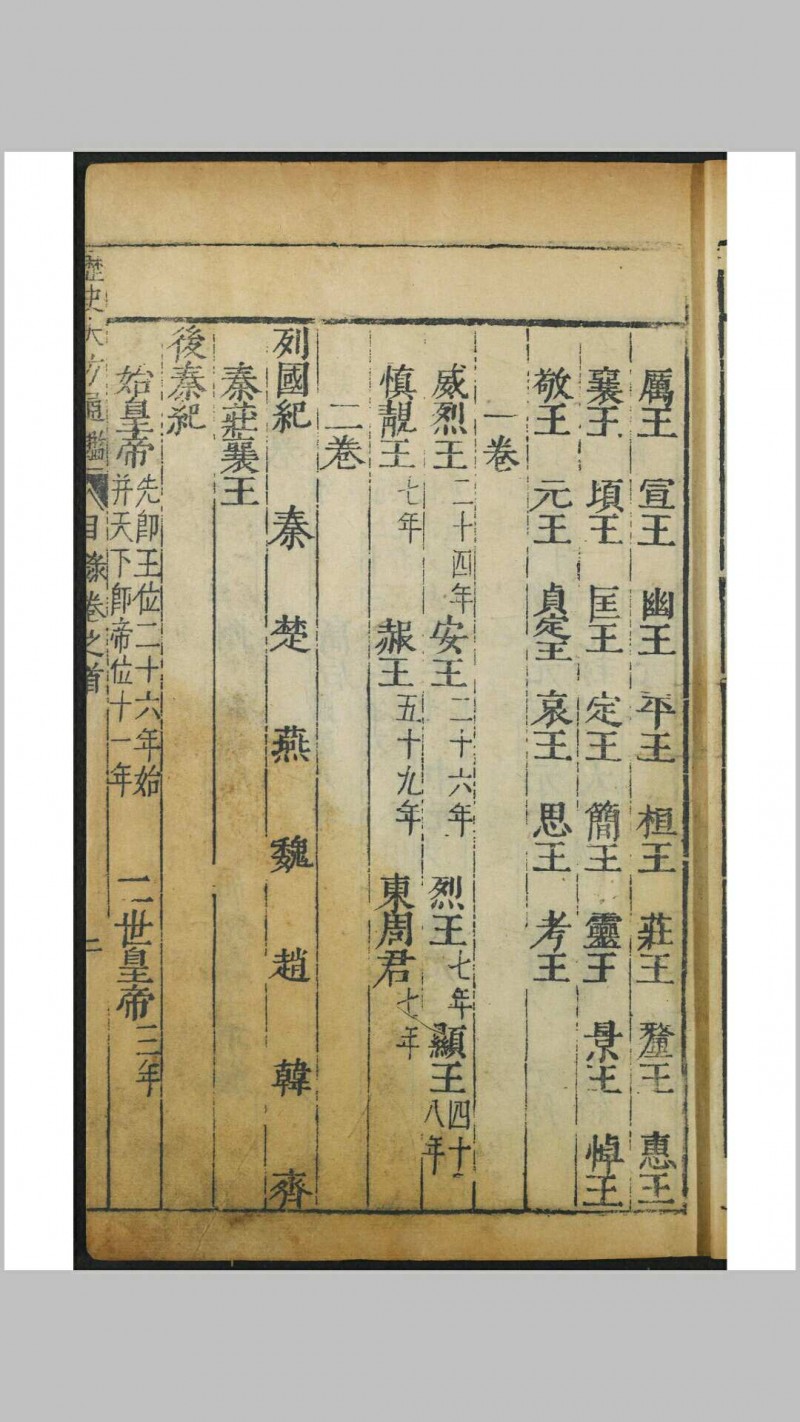 厲王 宣王 幽王 平王 桓王 莊王 釐王 惠王
襄王 頃王 匡王 定王 簡王 靈王 景王 悼王
敬王 元王 貞定王 哀王 思王 考王
一卷
威烈王二十四年 安王二十六年 烈王七年 顯王四十八年
慎靚王七年 赧王五十九年 東周君七年
二卷
列國紀 秦 楚 燕 魏 趙 韓 齊
秦莊襄王
後秦紀
始皇帝先卽王位二十六年始并天下卽帝位十一年 二世皇帝三年
歷史大方通鑑 目錄卷之首 二